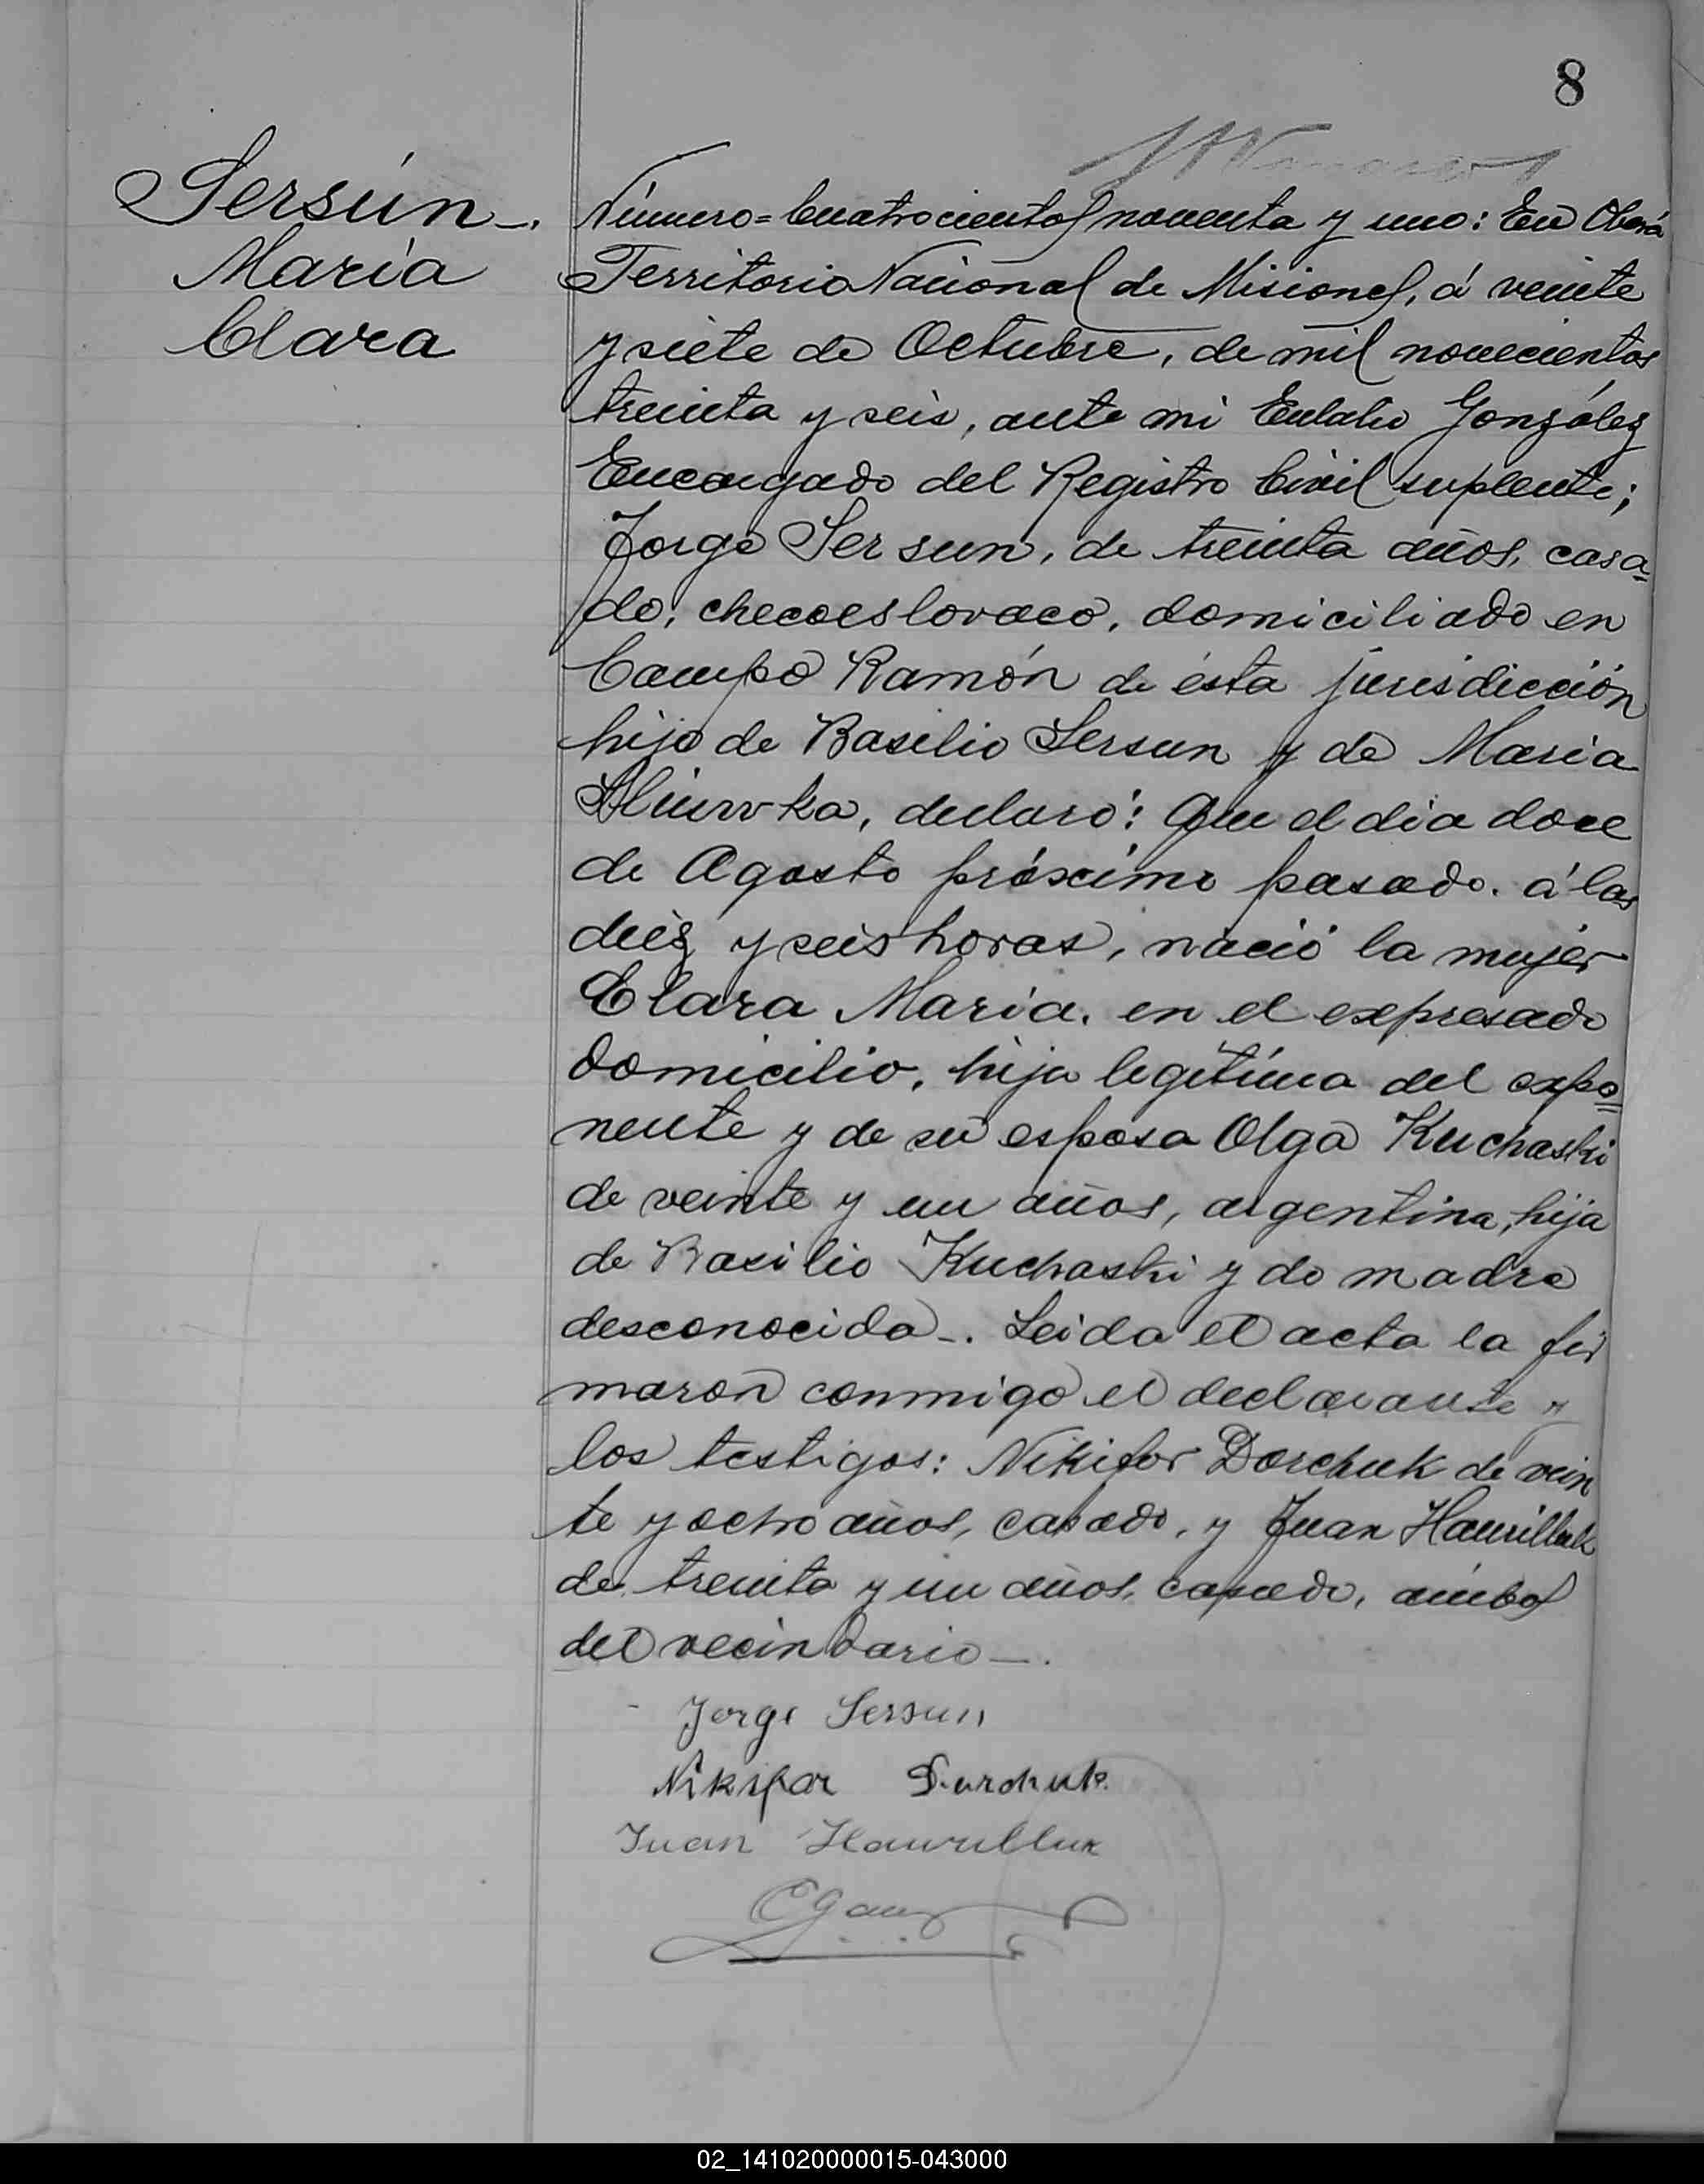 8
Sersún-.
María
Clara
Número= Cuatrocientos noventa y uno: En Oberá
Territorio Nacional de Misiones, á veinte
y siete de Octubre, de mil novecientos
treinta y seis, ante mi Eulalio González
Encargado del Registro Civil suplente;
Jorge Sersun, de treinta años, casa=
do, checoeslovaco, domiciliado en
Campo Ramón de ésta jurisdicción
hijo de Basilio Sersun y de Maria
declaró: Que el dia doce
de Agosto próximo pasado. á las
diéz y seis horas, nació la mujer
Clara María. en el expresado
domicilio, hija legítima del expo=
nente y de su esposa Olga Kuchaski
de veinte y un años, argentina, hija
de Basilio Kuchaski y de madre
desconocida-. Leida el acta la fir
maron conmigo el declarante y
los testigos: Nikifor Dorchuk de vein
te y ocho años, casado, y Juan Haurilluk
de treinta y un años, casado, ambos
del vecindario-.
Jorge Sersun
Nikifor Durchuk
Juan Hawrilluk
02_141020000015-043000